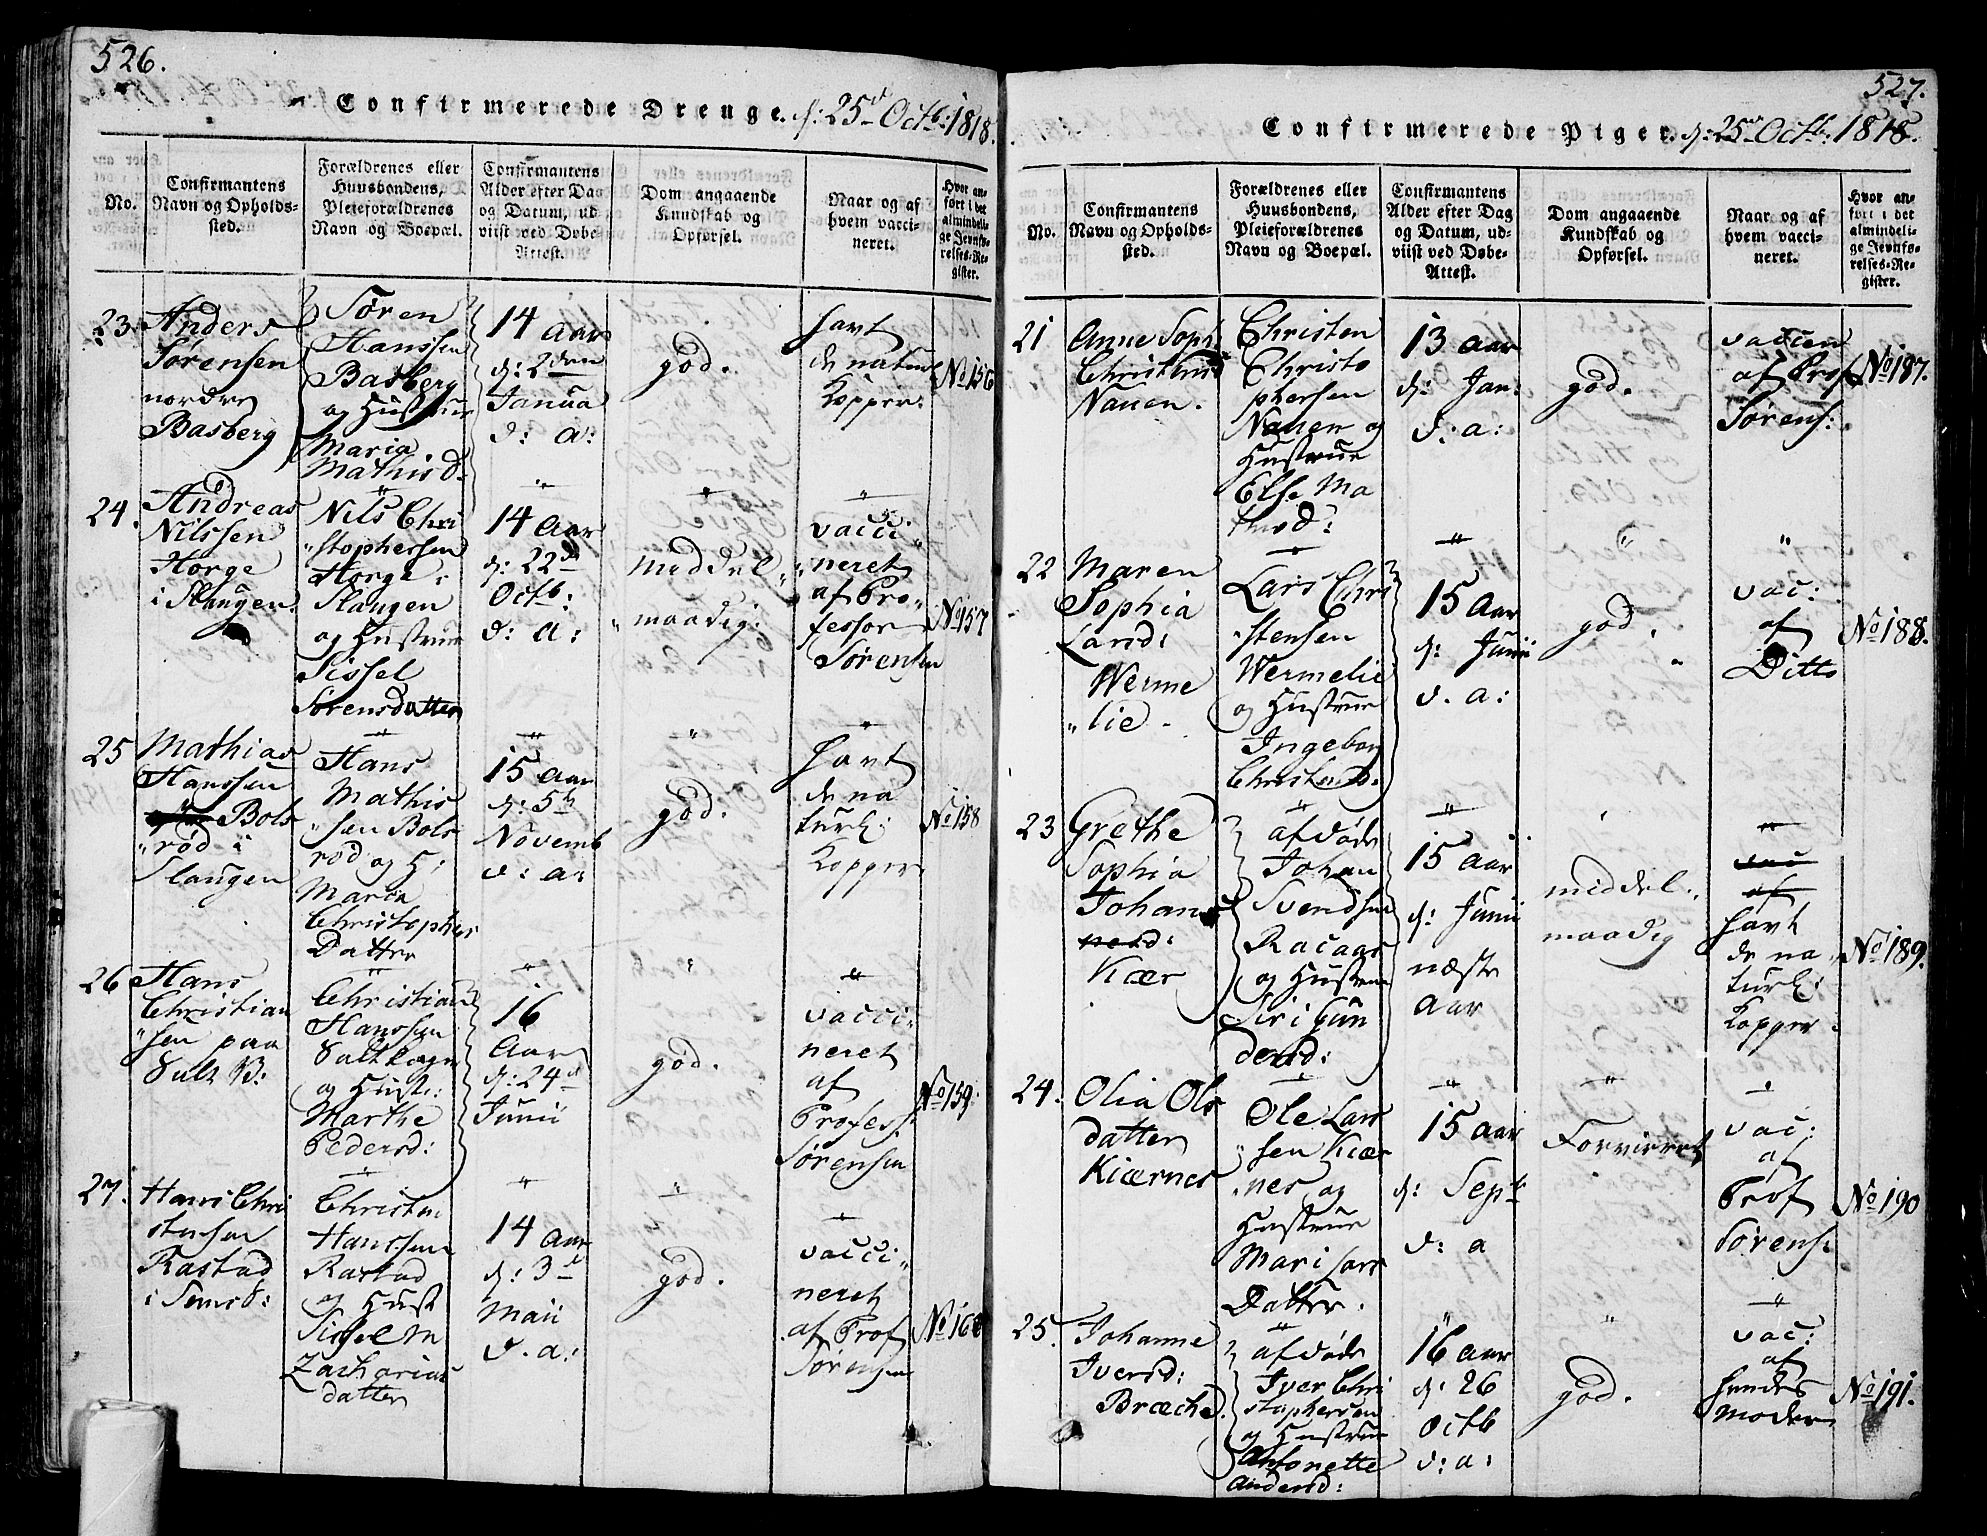 526.
Confirmerede Drenge. d: 25de Octb: 1818.
No.
Confirmantens
Navn og Opholds-
sted.
Forældrenes eller
Huusbondens,
Pleieforældrenes
Navn og Boepæl.
Confirmantens
Alder efter Dag
og Datum, ud-
viist ved Døbe-
Attest.
Dom angaaende
Kundskab og
Opførsel.
Naar og af
hvem vacci-
neret.
Hvor an-
ført i det
almindeli-
ge Jevnfø-
relses-Re-
gister.
23.
Anders
Sørensen
nordre
Basberg
Søren
Hanssen
Basberg
og Hustrue
Maria
Mathisd.
14 Aar
d: 2den
Janua
d: a:
god.
havt
de naturl
Kopper.
No 156
24.
Andreas
Nilssen
Horge
i Slangen.
Nils Chri
"stophersen
Horge i
Slangen
og Hustrue
Sissel
Sørensdatter
14 Aar
d: 22de
Octb:
d: a:
middel
"maadig:
vacci
"neret
af Pro
fessor
Sørensen
No 157
25
Mathias
Hanssen
Bols
"rød i
Slangen
Hans
Mathis
"sen Bols
rød og H:
Maria
Christopher
Datter
15 Aar
d: 5te
Novemb
d: a:
god.
havt
de na
turl:
Kopper
No 158
26
Hans
Christian
"sen paa
Salt B:
Christian
Hanssen
Saltkoger
og Hust:
Marthe
Pedersd:
16
Aar
d: 24de
Junii
god.
vacci
neret
af
Profess:
Sørensen
No 159.
27.
Hans Chri
stensen
Rastad
i Semsd:
Christen
Hanssen
Rastad
og Hust
Sissel M
Zacharias
datter
14 Aar
d: 3de
Maii
d. a:
god.
vacci
neret
af Prof
Sørensen
No 160
527.
Confirmerede Piger. d: 25de Octb: 1818.
No.
Confirmantens
Navn og Opholds-
sted.
Forældrenes eller
Huusbondens,
Pleieforældrenes
Navn og Boepæl.
Confirmantens
Alder efter Dag
og Datum, ud-
viist ved Døbe-
Attest.
Dom angaaende
Kundskab og
Opførsel.
Naar og af
hvem vacci-
neret.
Hvor an-
ført i det
almindeli-
ge Jevnfø-
relses-Re-
gister.
21
Anne Soph
Christens
Nauen.
Christen
Christo
phersen
Nauen og
Hustrue
Else Ma
thisd:
13 Aar
d: Jan:
d: a:
god.
vaccen
af Prof
Sørens:
No 187.
22
Maren
Sophia
Larsd:
Werme
"lie.
Lars Chri
"stensen
Wermelie
og Hustrue
Ingeborg
Christensd.
15 Aar
d: Junii
d. a:
god.
vac:
af
Ditto
No 188.
23
Grethe
Sophia
Johan
nesd:
Kiær
afdøde
Johan
Svendsen
Racaas
og Hustrue
Siri Gun
dersd:
15 Aar
d: Junii
næste
Aar
middel
maadig
vac
af
havt
de na
turl:
Kopper
No 189.
24.
Olia Ols
datter
Kiærnes
Ole Lars
"sen Kiær
"nes og
Hustrue
Mari Lars
Datter.
15 Aar
d: Septb
d: a
Forvirret
vac:
af
Prof
Sørens:
No 190
25.
Johanne
Iversd:
Bræche.
afdøde
Iver Chri
stophersen
og Hustrue
Antonette
Andersd:
16 Aar
d: 26
Octb
d: a:
god.
vac:
af
hendes
Moder
No 191.